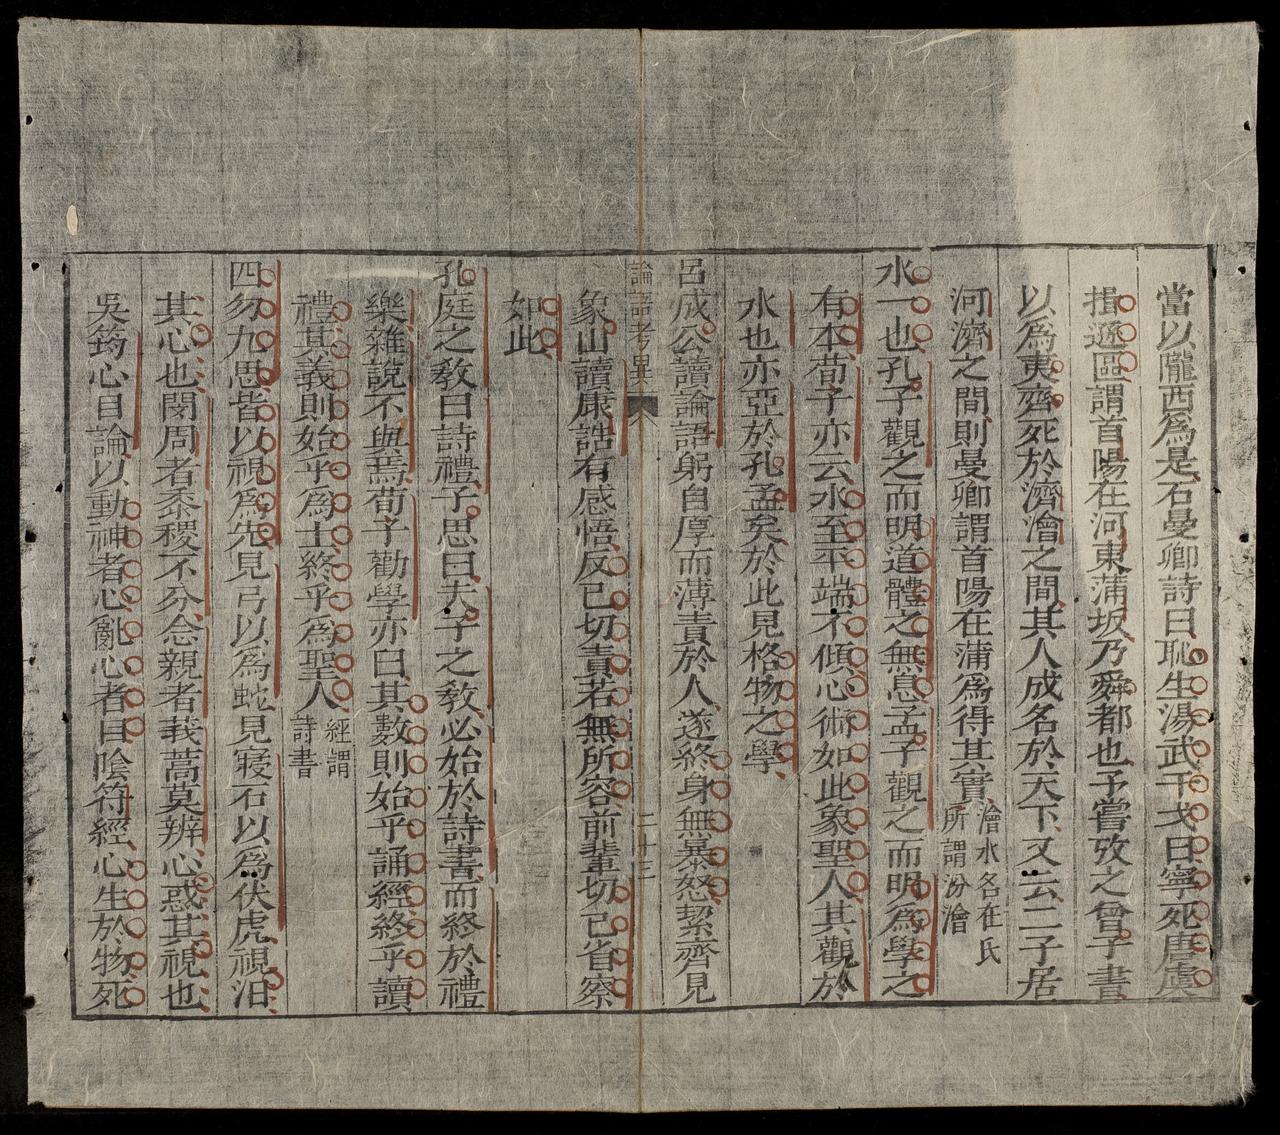 當以隴西爲是石曼卿詩曰恥生湯武干戈日寧死唐虞
揖遜區謂首陽在河東蒲坂乃舜都也予嘗攷之曾子書
以爲夷齊死於濟澮之間其人成名於天下又云二子居
河濟之間則曼卿謂首陽在蒲爲得其實澮水名在氏
所謂汾澮
水一也孔子觀之而明道體之無息孟子觀之而明爲學之
有本荀子亦云水至平端不傾心術如此象聖人其觀於
水也亦亞於孔孟矣於此見格物之學
呂成公讀論語躬自厚而薄責於人遂終身無暴怒絜齊見
論語考異
八
二十三
象山讀康誥有感悟反已切責若無所容前輩切已省察
如此
孔庭之教曰詩禮子思曰夫子之教必始於詩書而終於禮
樂雜說不與焉荀子勸學亦曰其數則始乎誦經終乎讀
禮其義則始乎爲士終乎爲聖人經謂
詩書
四勿九思皆以視爲先見弓以爲蛇見寢石以爲伏虎視汨
其心也閔周者黍稷不分念親者莪蒿莫辨心惑其視也
吳筠心目論以動神者心亂心者目陰符經心生於物死